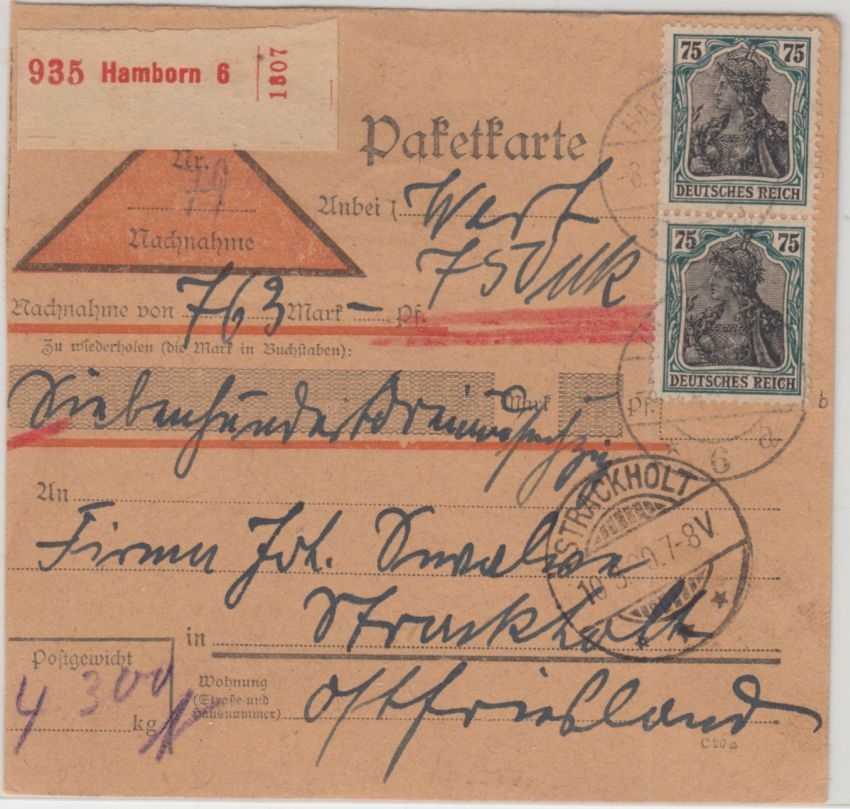 935 Hamborn 6
1807
75 75
DEUTSCHES REICH
75 75
DEUTSCHES REICH
Paketkarte
Nr.
Nachnahme
Anbei 1 Wert
750 Mk
Nachnahme von 763 Mark — Pf.
Zu wiederholen (die Mark in Buchstaben):
Siebenhundertdreiundsechzig Mark Pf.
b
6 a
STRACKHOLT
7-8V
An
Firma Joh.
in Strackholt
Wohnung
(Straße und
Hausnummer)
Ostfriesland
Postgewicht
4 300
kg
C 20a